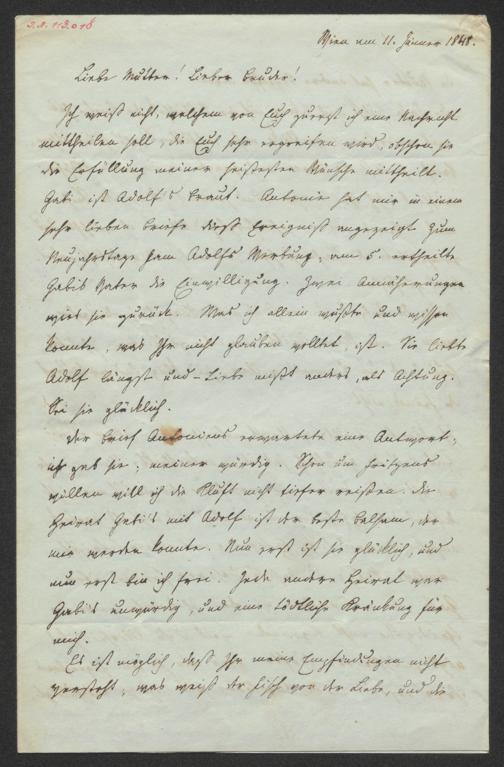 J.N. 113.018
Wien am 11. Jänner 1848.
Liebe Mutter! Lieber Bruder!
Ich weiß nicht, welchem von Euch zuerst ich eine Nachricht
mittheilen soll, die Euch sehr ergreifen wird, obschon sie
die Erfüllung meiner heißesten Wünsche mittheilt.
Gabi ist Adolf's Braut. Antonie hat mir in einem
sehr lieben Briefe dieß Ereigniß angezeigt. Zum
Neujahrstage kam Adolfs Werbung, am 5. ertheilte
Gabis Vater die Einwilligung. Zwei Annäherungen
wies sie zurück. Was ich allein wußte und wissen
konnte, was Ihr nicht glauben wolltet, ist. Sie liebte
Adolf längst und – Liebe mißt anders, als Achtung.
Sei sie glücklich.
Der Brief Antoniens erwartete eine Antwort;
ich gab sie, meiner würdig. Schon um Fritzens
willen will ich die Kluft nicht tiefer reißen. Die
Heirat Gabi's mit Adolf ist der beste Balsam, der
mir werden konnte. Nun erst ist sie glücklich, und
nun erst bin ich frei. Jede andere Heirat war
Gabi's unwürdig, und eine tödtliche Kränkung für
mich.
Es ist möglich, daß Ihr meine Empfindungen nicht
versteht, was weiß der Fisch von der Liebe, und die